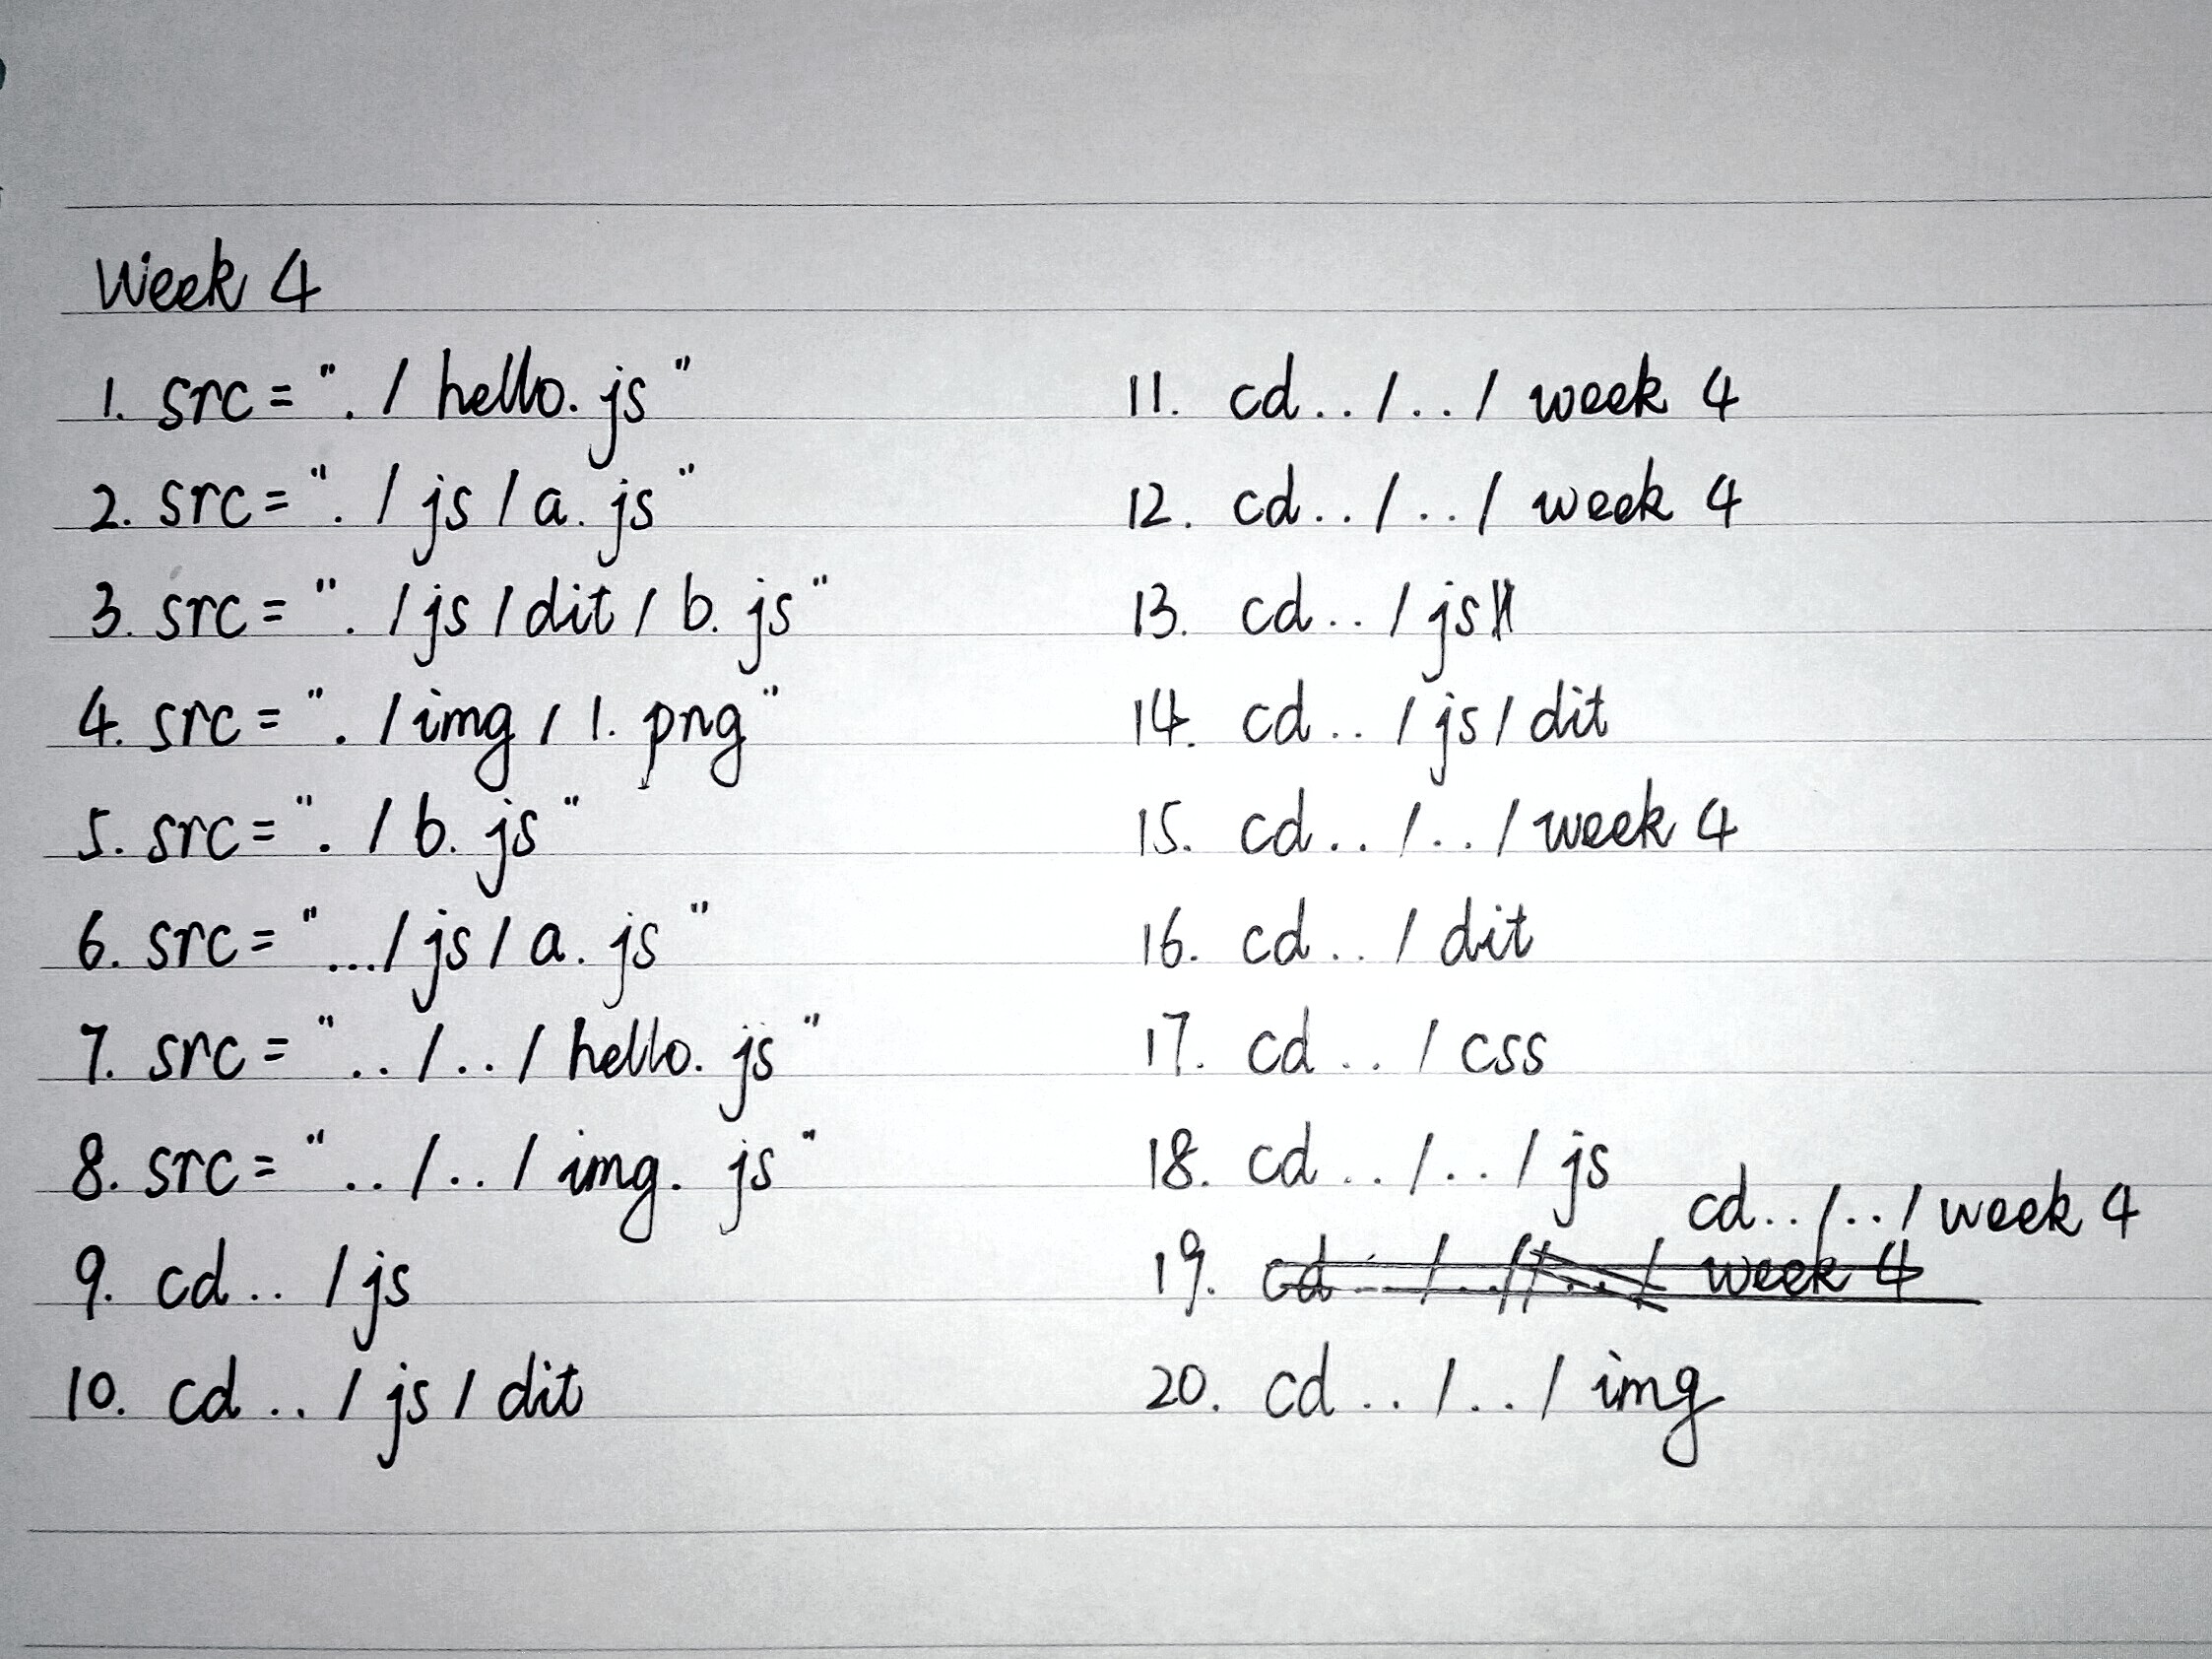 Week 4
1. src = "./hello.js"
2. src = "./js/a.js"
3. src = "./js/dit/b.js"
4. src = "./img/1.png"
5. src = "./b.js"
6. src = ".../js/a.js"
7. src = "../../hello.js"
8. src = "../../img.js"
9. cd.. /js
10. cd.. /js/dit
11. cd../../week 4
12. cd../../week 4
13. cd../js
14. cd../js/dit
15. cd../../week 4
16. cd../dit
17. cd../css
18. cd../../js
19. cd../../week 4
20. cd../../img